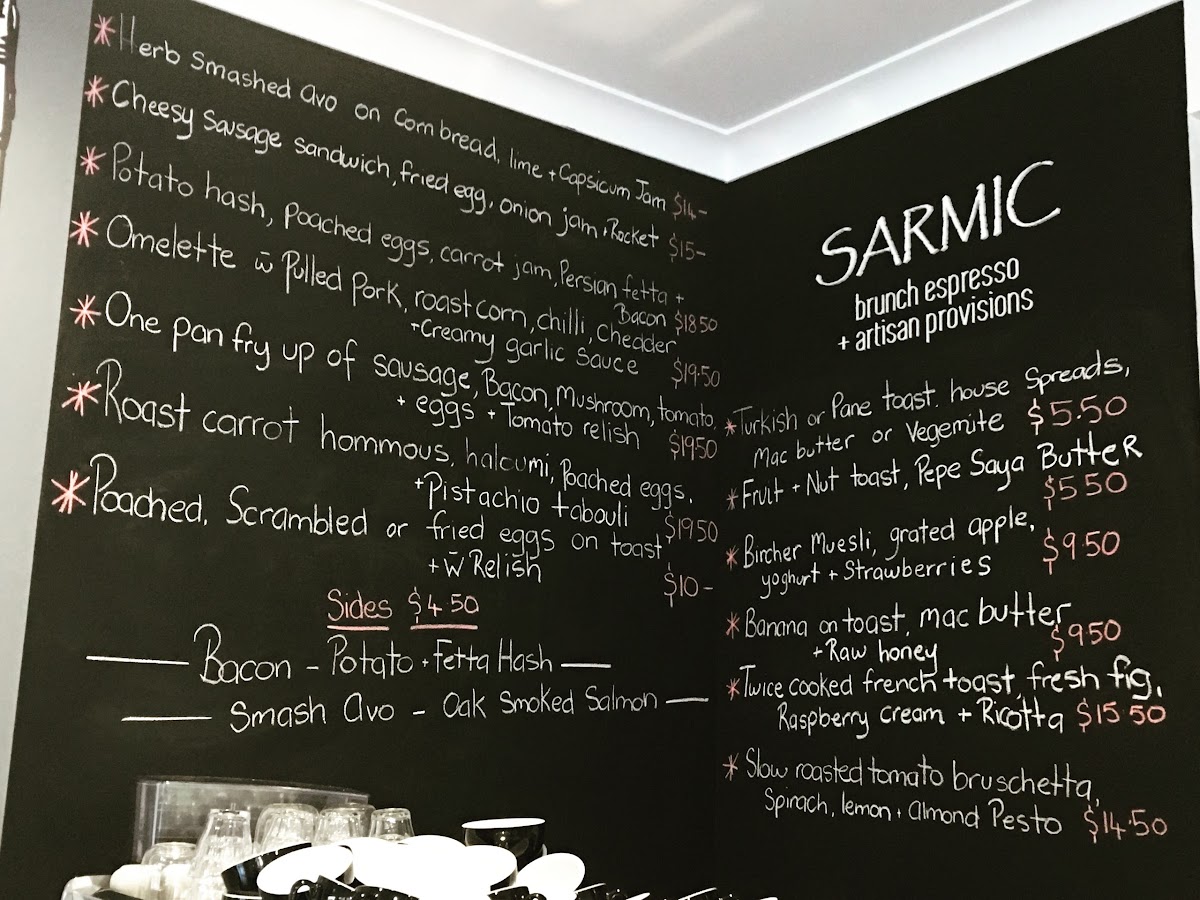 *Herb Smashed avo on Cornbread, lime + Capsicum Jam $14-
*Cheesy sausage sandwich, fried egg, onion jam + Rocket $15-
*Potato hash, poached eggs, carrot jam, Persian fetta +
Bacon $18.50
*Omelette w̄ Pulled Pork, roast corn, chilli, Chedder
+Creamy garlic sauce $19.50
*One pan fry up of sausage, Bacon, Mushroom, tomato,
+ eggs + Tomato relish $1950
*Roast carrot hommous, haloumi, Poached eggs,
+Pistachio tabouli $1950
*Poached, Scrambled or fried eggs on toast
+ w̄ Relish $10-
Sides $4.50
Bacon - Potato + Fetta Hash
Smash avo - Oak Smoked Salmon
SARMIC
brunch espresso
+ artisan provisions
*Turkish or Pane toast. house Spreads,
Mac butter or Vegemite $5.50
*Fruit + Nut toast, Pepe Saya Butter
$5.50
*Bircher Muesli, grated apple,
yoghurt + Strawberries $9.50
*Banana on toast, mac butter
+Raw honey $9.50
*Twice cooked french toast, fresh fig,
Raspberry cream + Ricotta $15.50
*Slow roasted tomato bruschetta,
Spinach, lemon + almond Pesto $14.50